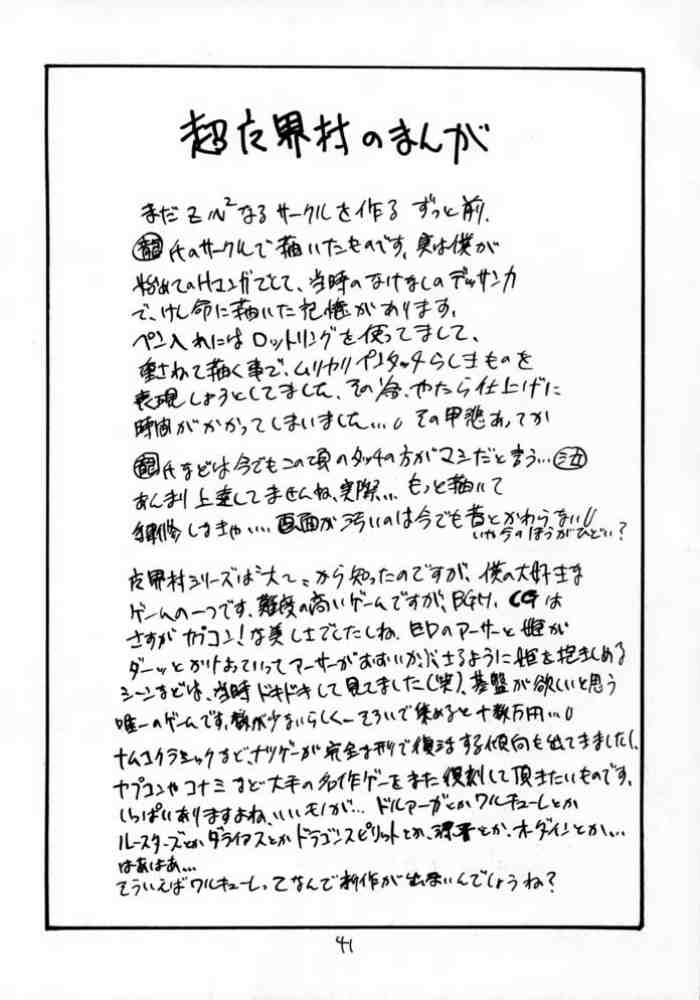 超魔界村のまんが
まだZ/N²なるサークルを作る ずっと前、
氏のサークルで描いたものです、実は僕が
始めてのHマンガでして、当時のなけなしのデッサン力
で、けん命に描いた記憶があります。
ペン入れにはロットリングを使ってまして、
重ねて描く事で、ムリヤリペンタッチらしきものを
表現しようとしてました、その分、やたら仕上げに
時間がかかってしまいました…。その甲斐あってか
氏などは今でもこの頃のタッチの方がマシだと言う…
あんまり上達してませんね、実際… もっと描いて
修しなきゃ…、画面が汚いのは今でも昔とかわらない
いや今のほうがひどい?
魔界村シリーズは"大〜"から知ったのですが、僕の大好きな
ゲームの一つです。難度の高いゲームですが、BGM、CGは
さすがカプコン!な美しさでしたしね、EDのアーサーと姫が
ダーッとかけよっていってアーサーが るように姫を抱きしめる
シーンなどは、当時ドキドキして見てました(笑)、基盤が欲しいと思う
唯一のゲームです。数が少ないらしく 集めると十数万円…
ナムコクラシックなど、ナツゲーが完全な形で復活する傾向も出てきましたし、
カプコンやコナミなど大手の名作ゲーをまた復刻して頂きたいものです。
いっぱいありますよね、いいモノが… ドルアーガとかワルキューレとか
ルースターズとかダライアスとかドラゴンスピリットとか、源平とか、オーダインとか…
はあはあ…
そういえばワルキューレってなんで新作が出ないんでしょうね?
41